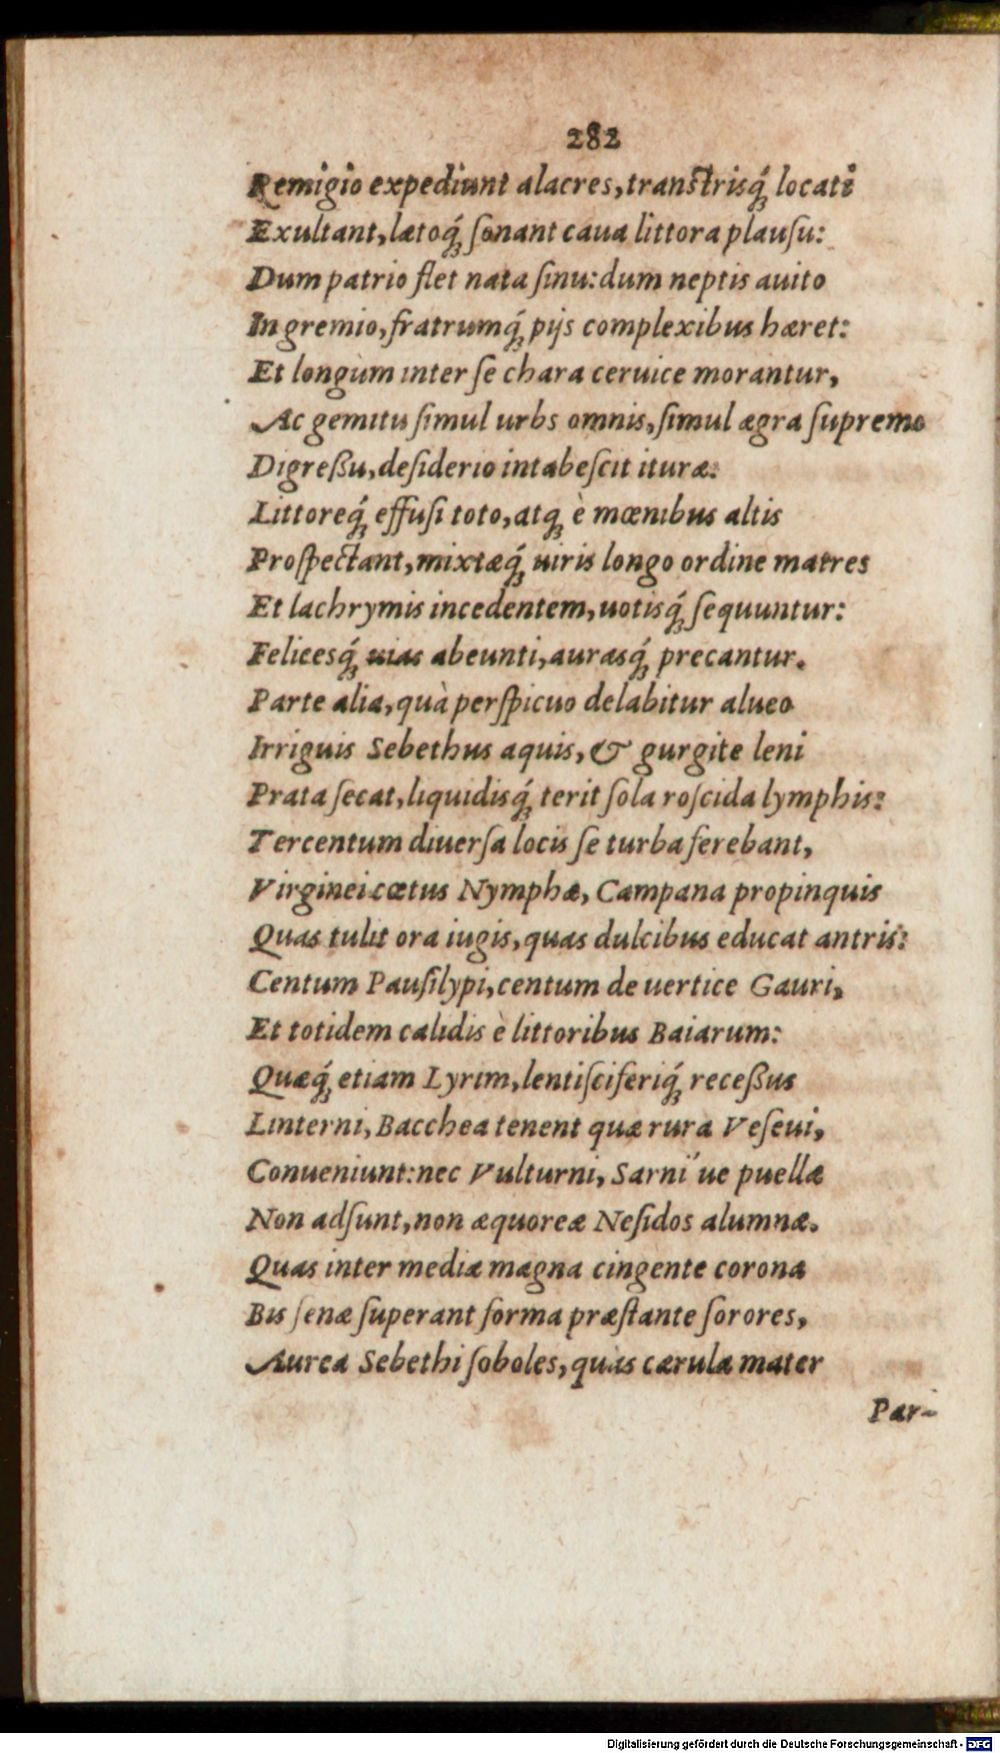 282
Remigio expediunt alacres, transtrisq́ꝫ locati
Exultant, lætoq́ꝫ ſonant caua littora plauſu:
Dum patrio flet nata ſinu: dum neptis auito
In gremio, fratrumq́ꝫ pijs complexibus hæret:
Et longùm inter ſe chara ceruice morantur,
Ac gemitu ſimul urbs omnis, ſimul ægra ſupremo
Digreßu, deſiderio intabeſcit ituræ:
Littoreq́ꝫ effuſi toto, atqꝫ è mœnibus altis
Proſpectant, mixtæq́ꝫ uiris longo ordine matres
Et lachrymis incedentem, uotisq́ꝫ ſequuntur:
Felicesq́ꝫ uias abeunti, aurasq́ꝫ precantur.
Parte alia, quà perſpicuo delabitur alueo
Irriguis Sebethus aquis, & gurgite leni
Prata ſecat, liquidisq́ꝫ terit ſola roſcida lymphis:
Tercentum diuerſa locis ſe turba ferebant,
Virginei cœtus Nymphæ, Campana propinquis
Quas tulit ora iugis, quas dulcibus educat antris:
Centum Pauſilypi, centum de uertice Gauri,
Et totidem calidis è littoribus Baiarum:
Quæq́ꝫ etiam Lyrim, lentiſciferiq́ꝫ receßus
Linterni, Bacchea tenent quæ rura Veſeui,
Conueniunt: nec Vulturni, Sarni´ue puellæ
Non adſunt, non æquoreæ Neſidos alumnæ.
Quas inter mediæ magna cingente corona
Bis ſenæ ſuperant forma præſtante ſorores,
Aurea Sebethi ſoboles, quas cærula mater
Par-
Digitalisierung gefördert durch die Deutsche Forschungsgemeinschaft - DFG